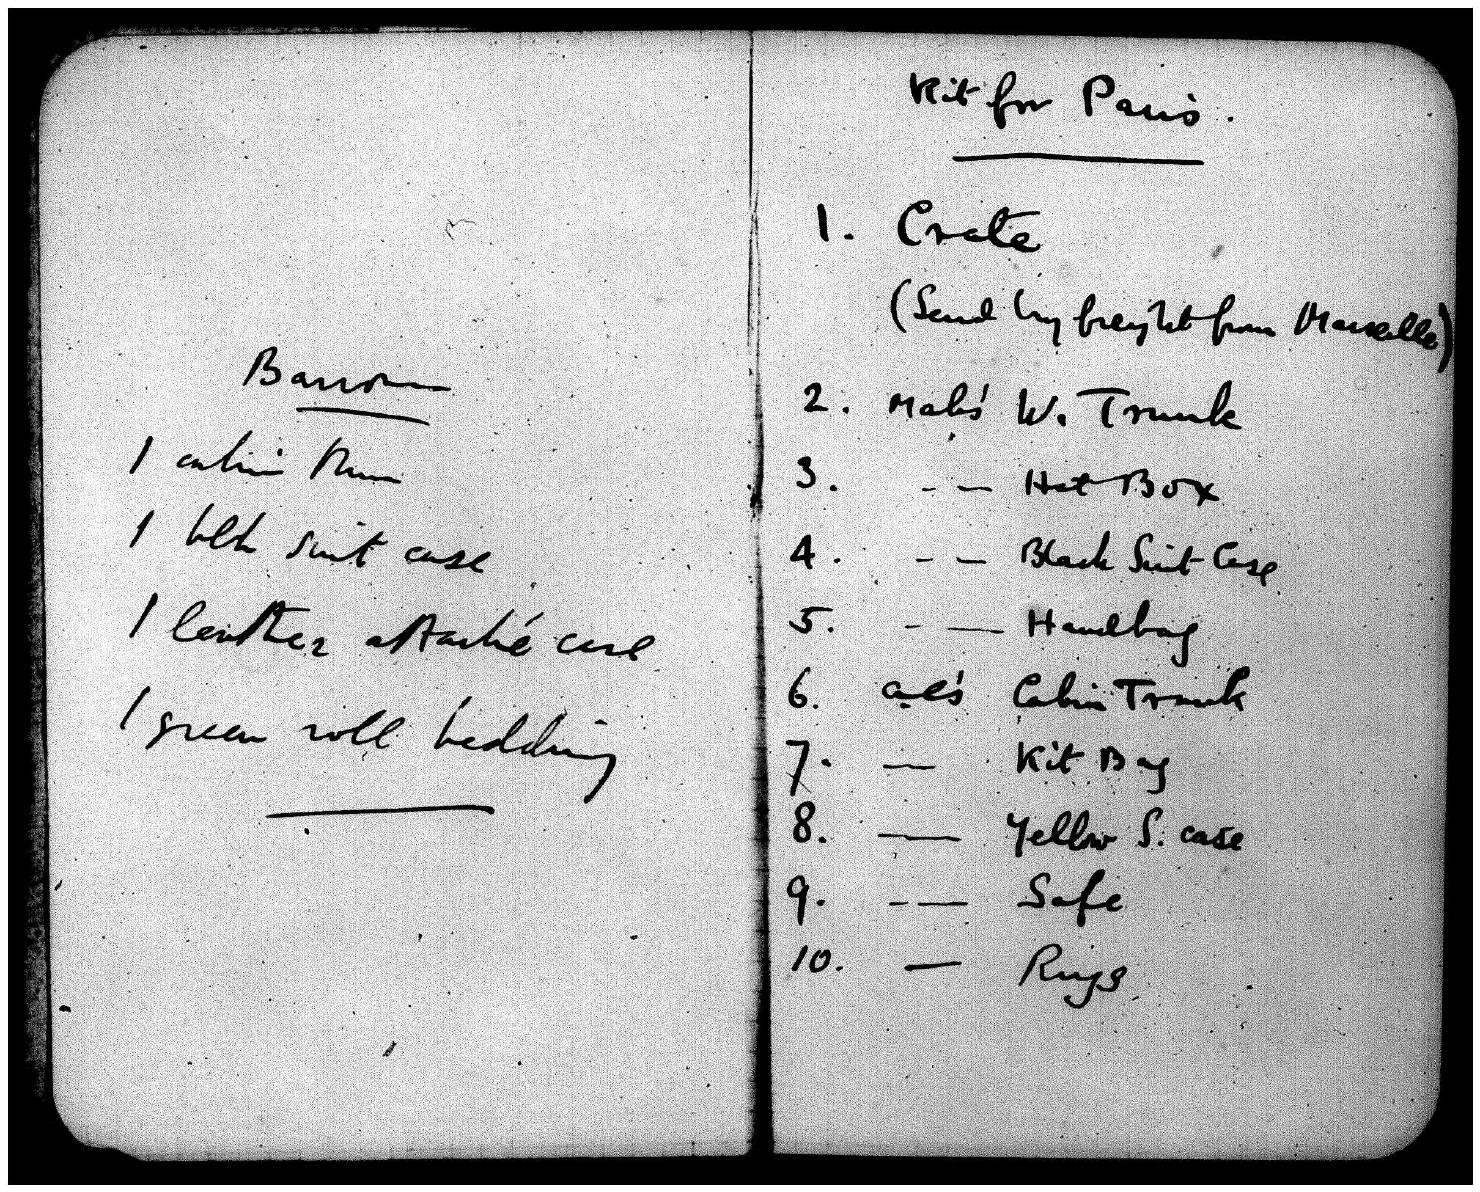 Barron
1 cabin trunk
1 blk suit case
1 leather attaché case
1 green roll bedding
Kit for Paris.
1. Crate
(Send by freight from Marseille)
2. Mab's W. Trunk
3. - — Hat Box
4. - — Black Suit Case
5. - — Handbag
6. Cabin Trunk
7. — Kit Bag
8. — Yellow S. case
9. - — Safe
10. — Rugs